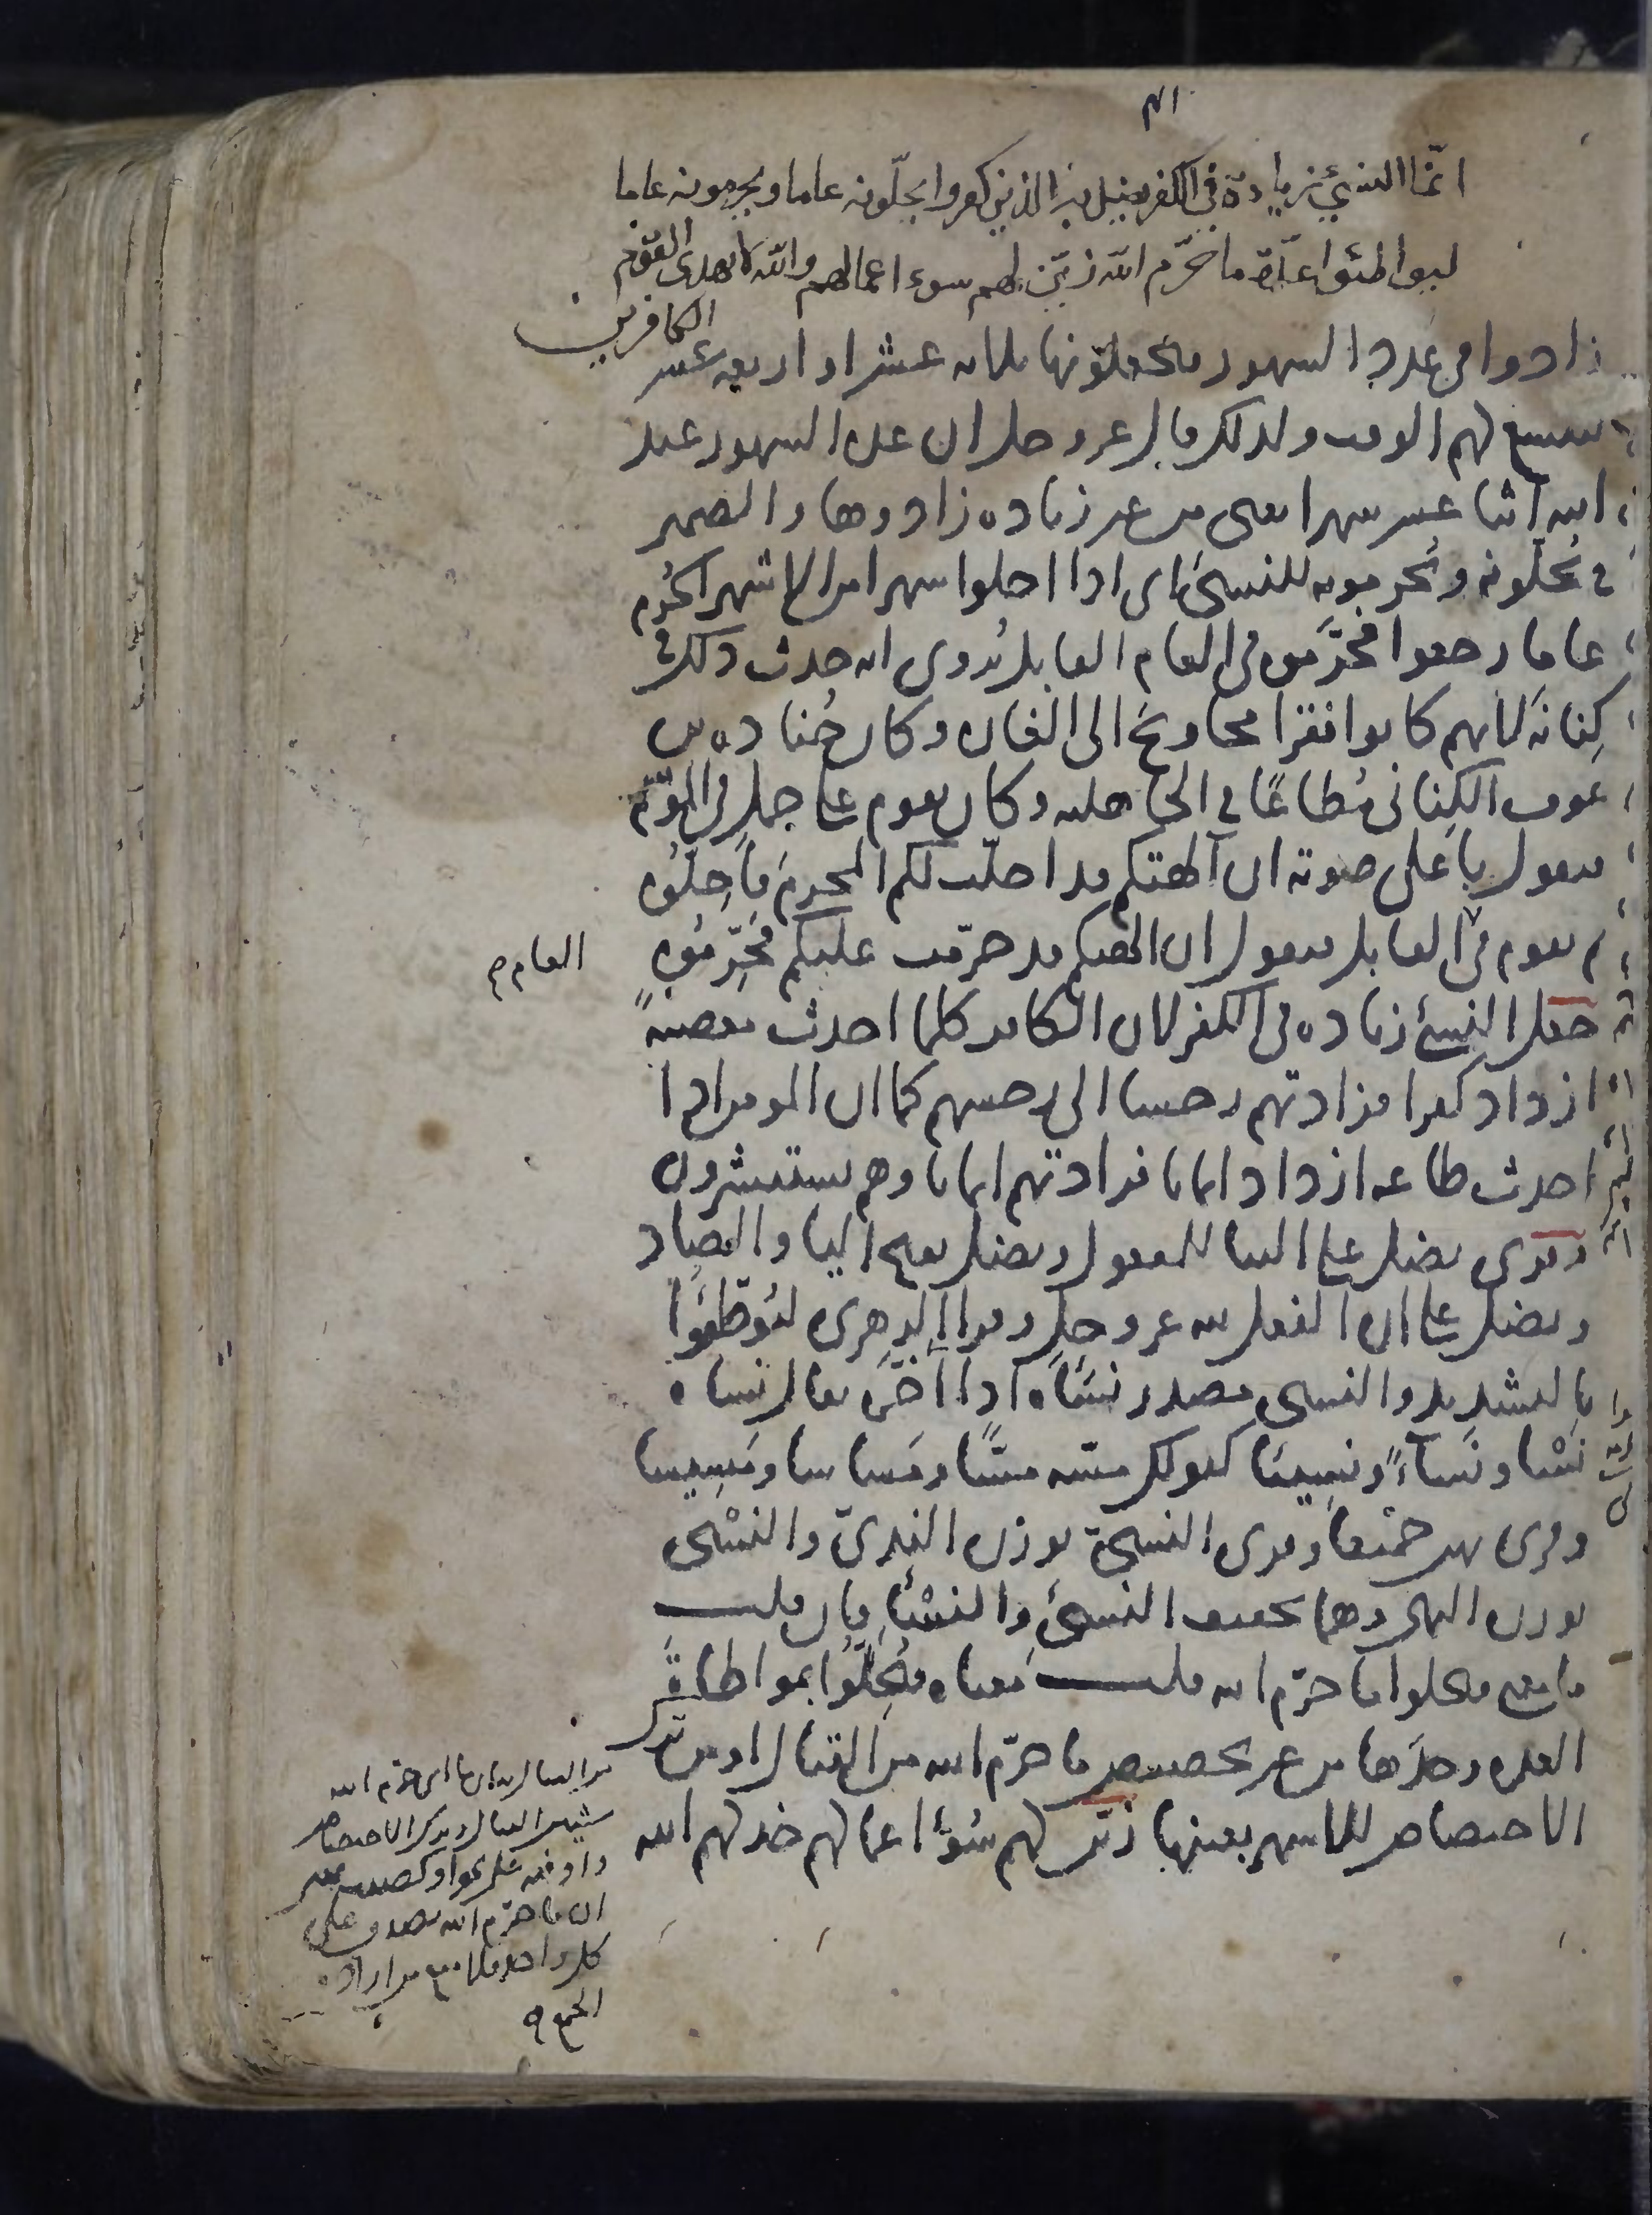 انّما النسئ زيادة في الكفر يضل به الذين كفروا يحلّونه عاما ويحرمونه عاما
ليواطئوا عدّة ما حرّم الله زيّن لهم سوء اعمالهم والله لا يهدى القوم
الكافرين
زادوا فى عدد الشهور فيجعلونها ثلاثة عشر او اربعة عشر
ليتسع لهم الوقت ولذلك قال عز وجل ان عدة الشهور عند
الله اثنا عشر شهرا يعنى من غير زيادة زادوها والضمير
فى يحلّونه ويُحرمونه للنسئ اى اذا احلوا شهرا من الاشهر الحُرم
عاما رجعوا فحرَّموه فى العام القابل يُروى انه حدث ذلك فى
كِنانة لانهم كانوا فقرا محاويج الى الغارة وكان جُنادة بن
عوف الكِنانى مُطاعًا فى الجاهلية وكان يقوم على جمل فى الموسم
فيقول باعلى صوته ان آلهتكم قد احلّت لكم المحرم فاحِلّوه
ثم يقوم فى القابل فيقول ان الهتكم قد حرّمت عليكم فحَرِّموه
العام
جعل النسئ زيادة فى الكفر لان الكافر كلما احدث معصيةً
ازداد كفرا فزادتهم رجسا الى رجسهم كما ان المومن اذا
احدث طاعة ازداد ايمانا فزادتهم ايمانا وهم يستبشرون
وقرى يضل على البنا للمفعول ويضل بفتح اليا والضاد
ويضل على ان الفعل لله عز وجل وقرا الزهرى ليُوطّئوا
بالتشديد والنسئ مصدر نسَأه اذا اخّره يقال نسأه
نسْا ونَساءً ونسيئا كقولك مسّه مسًّا ومَساسا ومَسيسا
وقرى بهن جَمْيعا وقرى النسىّ بوزن الندىّ والنسْى
بوزن النهى وهما تخفيف النسئ والنسْئ فان قلت
ما معنى فيحلوا ما حرّم الله قلت معناه فيُحِلّوا بمواطاة
العدة وحدَها من غير تخصيص ما حرّم الله من القتال او من ترك
الاختصاص للاشهر بعينها زيّن لهم سُوٓء اعمالهم خذلهم الله
ان ما حرّم الله يصدق على
كل واحد
الجمع